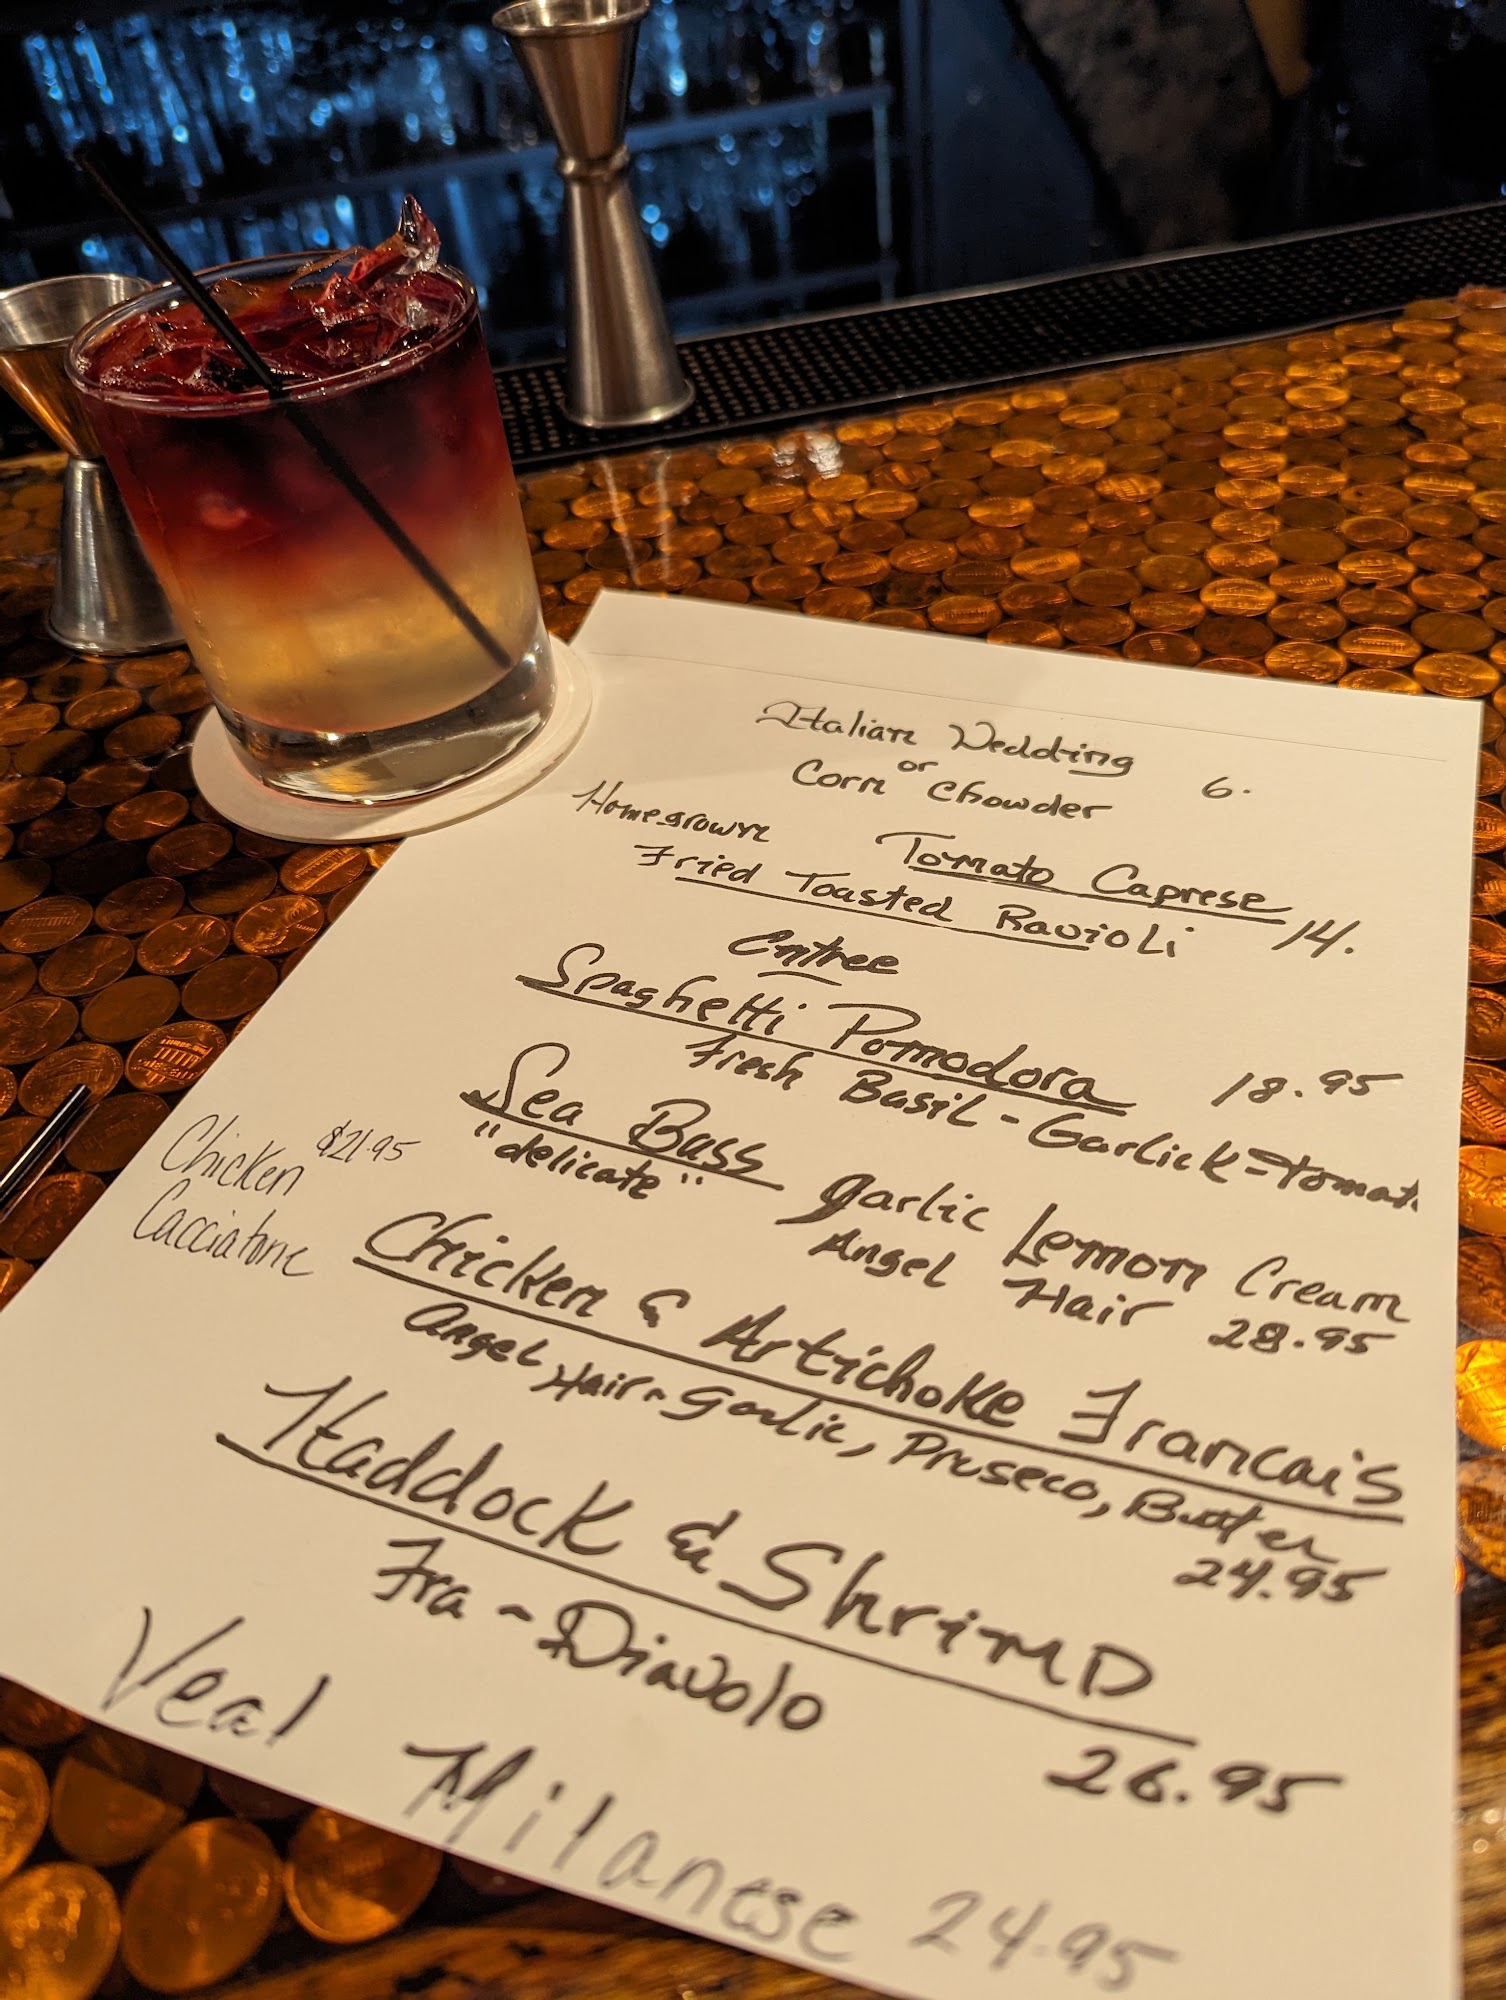 Italian Wedding
or
Corn Chowder 6.
Homegrown Tomato Caprese
Fried Toasted Ravioli 14.
Entree
Spaghetti Pomodora
Fresh Basil - Garlick - Tomat 18.95
Sea Bass Garlic Lemon Cream
"delicate" Angel Hair 28.95
Chicken $21.95
Cacciatore
Chicken & Artichoke Francais
Angel Hair - Garlic, Proseco, Butter
24.95
Haddock & Shrimp
Fra - Diavolo 26.95
Veal Milanese 24.95